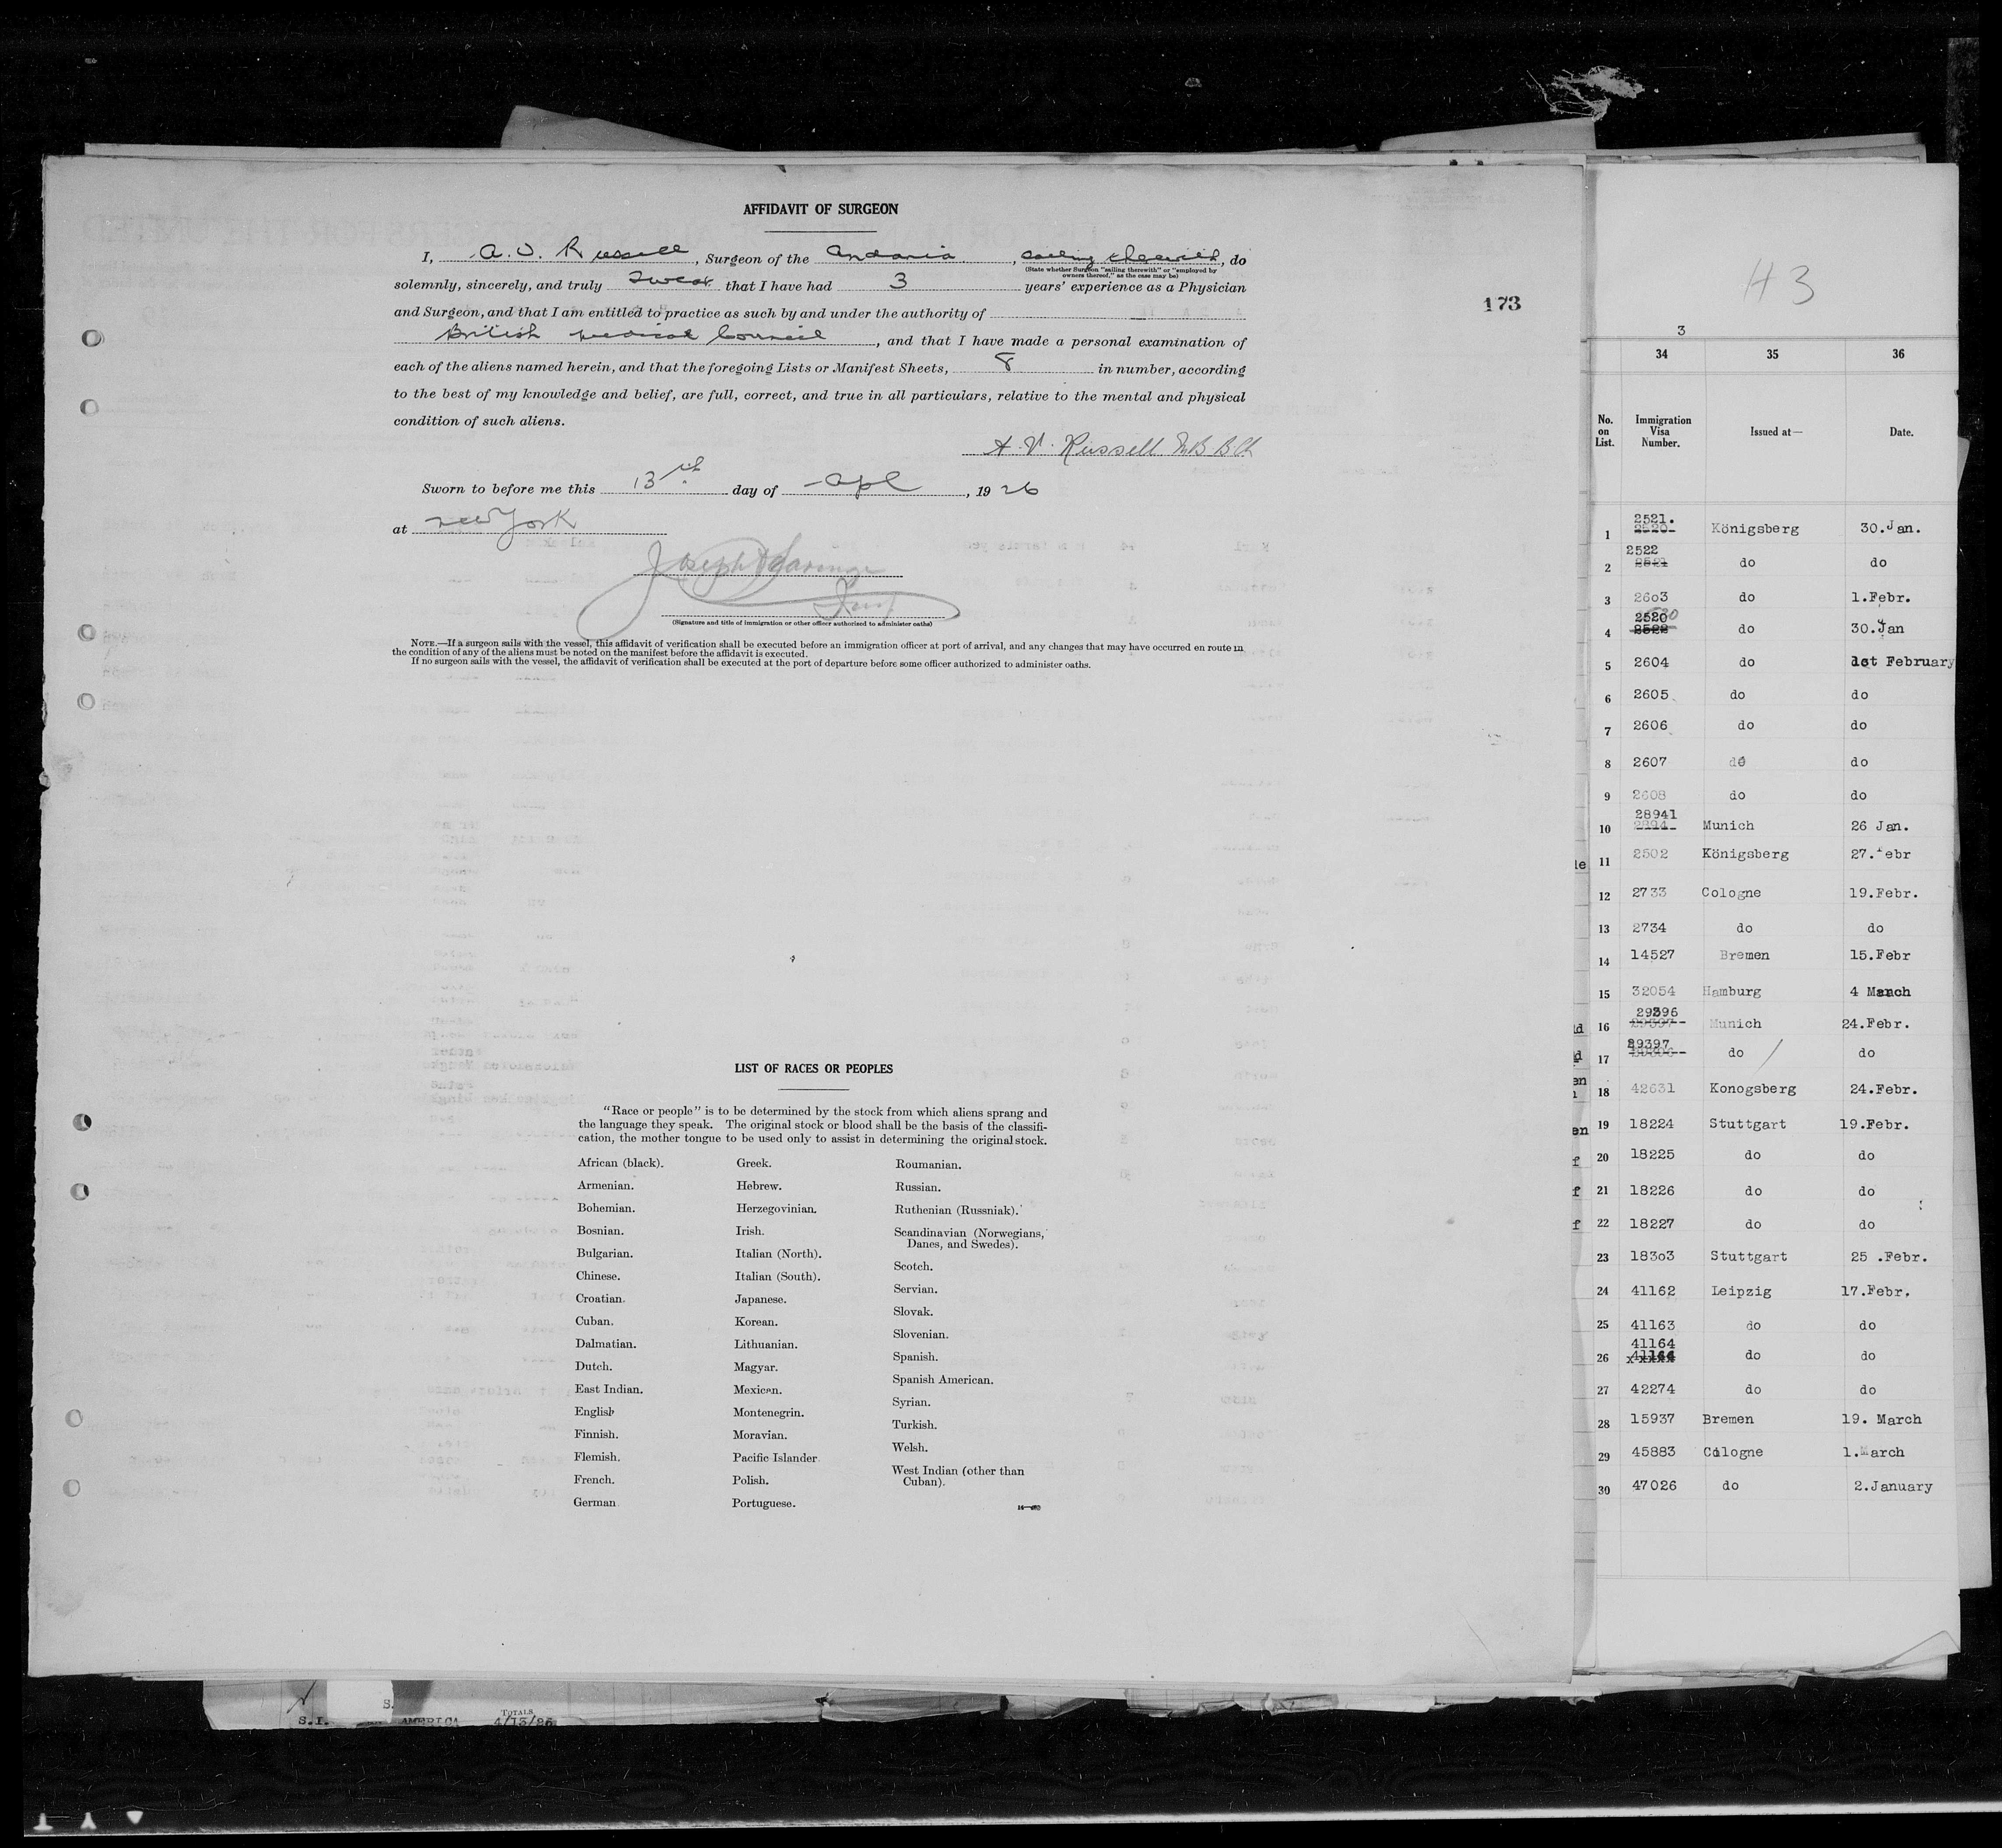 AFFIDAVIT OF SURGEON
I, A. V. Russell, Surgeon of the Andania, sailing therewith, do
(State whether Surgeon "sailing therewith" or "employed by
owners thereof," as the case may be)
solemnly, sincerely, and truly swear that I have had 3 years' experience as a Physician
and Surgeon, and that I am entitled to practice as such by and under the authority of
British Medical Council, and that I have made a personal examination of
each of the aliens named herein, and that the foregoing Lists or Manifest Sheets, 8 in number, according
to the best of my knowledge and belief, are full, correct, and true in all particulars, relative to the mental and physical
condition of such aliens.
A. V. Russell M B B Ch
Sworn to before me this 13th day of Apl, 1926
at New York
Joseph
(Signature and title of immigration or other officer authorized to administer oaths)
NOTE.—If a surgeon sails with the vessel, this affidavit of verification shall be executed before an immigration officer at port of arrival, and any changes that may have occurred en route in
the condition of any of the aliens must be noted on the manifest before the affidavit is executed.
If no surgeon sails with the vessel, the affidavit of verification shall be executed at the port of departure before some officer authorized to administer oaths.
173
LIST OF RACES OR PEOPLES
"Race or people" is to be determined by the stock from which aliens sprang and
the language they speak. The original stock or blood shall be the basis of the classifi-
cation, the mother tongue to be used only to assist in determining the original stock.
African (black).
Armenian.
Bohemian.
Bosnian.
Bulgarian.
Chinese.
Croatian.
Cuban.
Dalmatian.
Dutch.
East Indian.
English
Finnish.
Flemish.
French.
German
Greek.
Hebrew.
Herzegovinian.
Irish.
Italian (North).
Italian (South).
Japanese.
Korean.
Lithuanian.
Magyar.
Mexican.
Montenegrin.
Moravian.
Pacific Islander
Polish.
Portuguese.
Roumanian.
Russian.
Ruthenian (Russniak).
Scandinavian (Norwegians,
Danes, and Swedes).
Scotch.
Servian.
Slovak.
Slovenian.
Spanish.
Spanish American.
Syrian.
Turkish.
Welsh.
West Indian (other than
Cuban).
H3
3
34 35 36
No. on List. Immigration Visa Number. Issued at— Date.
2521.
1 2520 Königsberg 30.Jan.
2522
2 2521 do do
3 2603 do 1.Febr.
2520
4 2522 do 30.Jan
5 2604 do 1st February
6 2605 do do
7 2606 do do
8 2607 do do
9 2608 do do
28941
10 2894 Munich 26 Jan.
11 2502 Königsberg 27.Febr
12 2733 Cologne 19.Febr.
13 2734 do do
14 14527 Bremen 15.Febr
15 32054 Hamburg 4 March
29396
16 29397 Munich 24.Febr.
29397
17 do do
18 42631 Konogsberg 24.Febr.
19 18224 Stuttgart 19.Febr.
20 18225 do do
21 18226 do do
22 18227 do do
23 18303 Stuttgart 25 .Febr.
24 41162 Leipzig 17.Febr.
25 41163 do do
41164
26 do do
27 42274 do do
28 15937 Bremen 19. March
29 45883 Cologne 1.March
30 47026 do 2.January
S.I. AMERICA
TOTALS
4/13/26